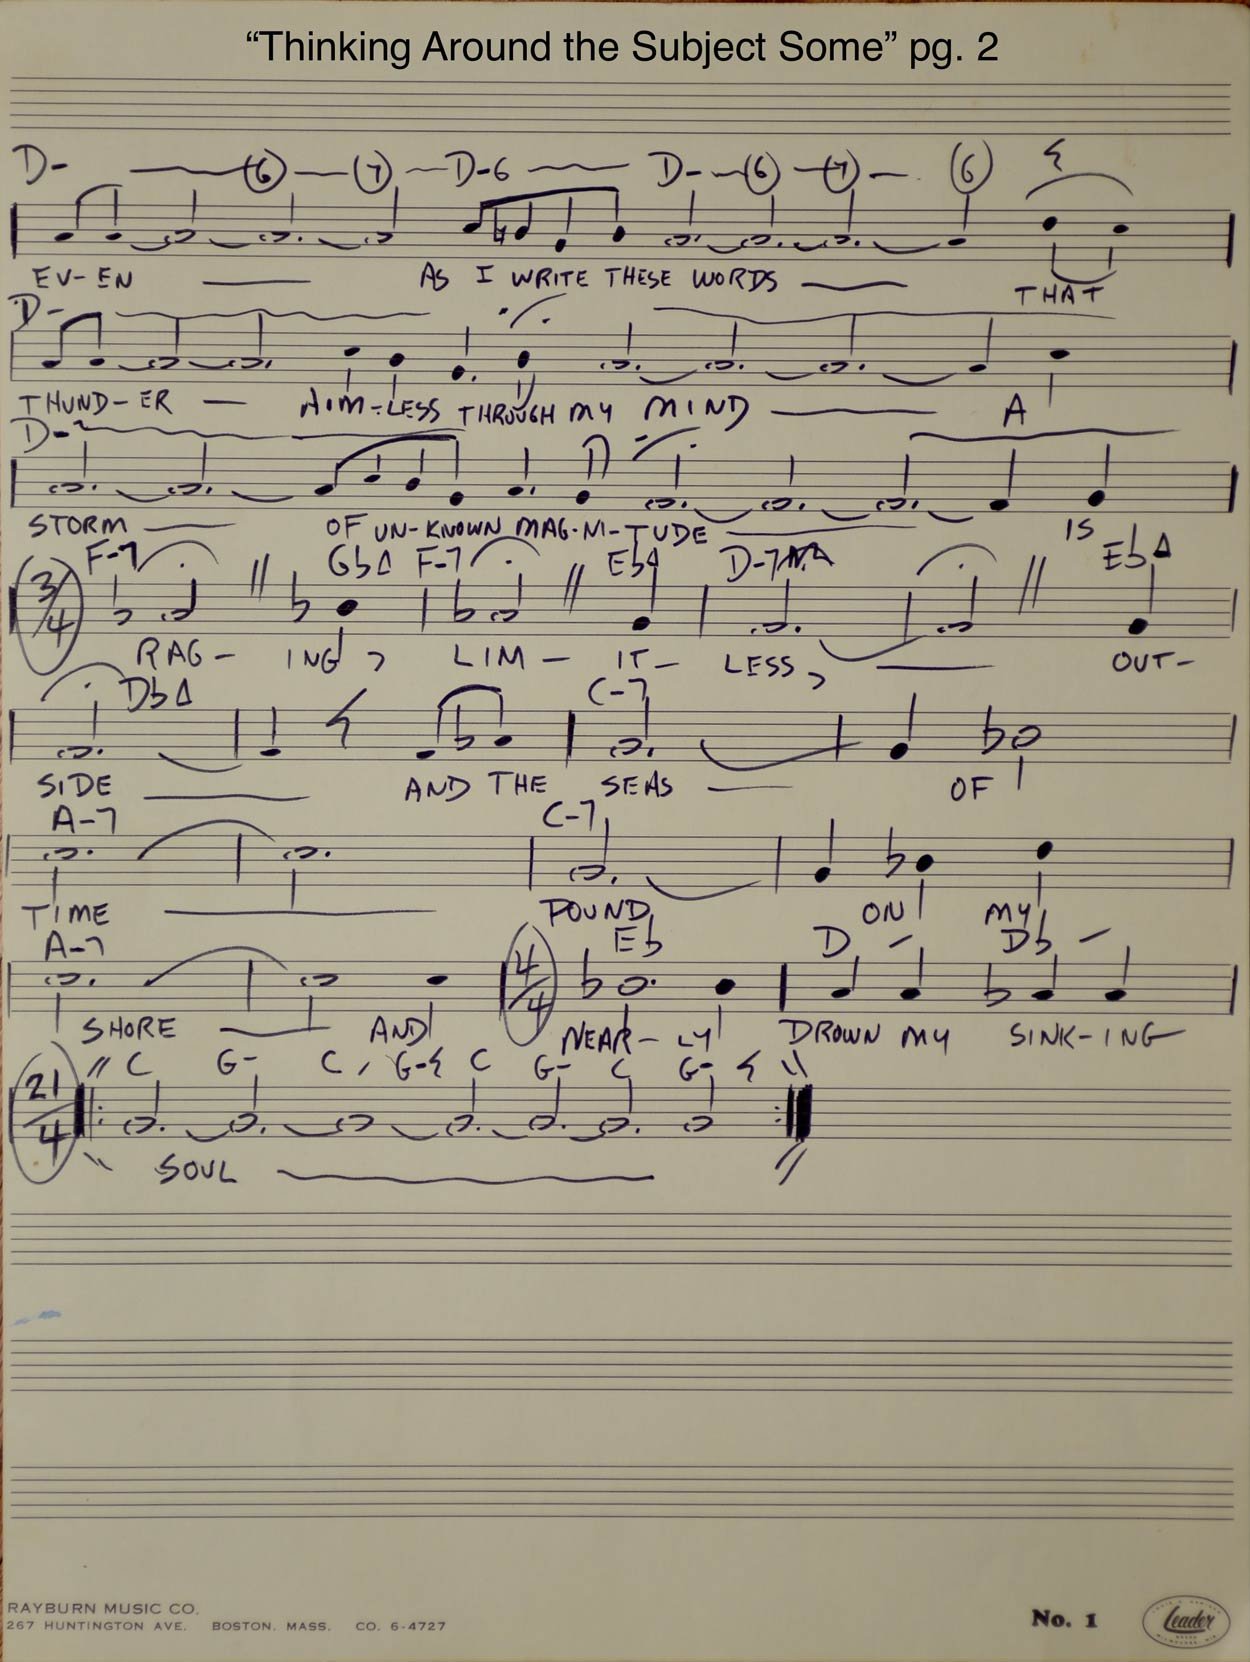 “Thinking Around the Subject Some” pg. 2
D- (6) (7) D-6 D- (6) (7) (6)
EV-EN AS I WRITE THESE WORDS THAT
D-
THUND-ER AIM-LESS THROUGH MY MIND A
D-
STORM OF UN-KNOWN MAG-NI-TUDE IS
F-7 GbΔ F-7 EbΔ D-7 EbΔ
3/4
RAG- ING, LIM- IT- LESS, OUT-
DbΔ C-7
SIDE AND THE SEAS OF
A-7 C-7
TIME POUND ON MY
A-7 Eb D Db
4/4
SHORE AND NEAR-LY DROWN MY SINK-ING
C G- C G- C G- C G-
21/4
SOUL
RAYBURN MUSIC CO.
267 HUNTINGTON AVE. BOSTON. MASS. CO. 6-4727
No. 1
Leader